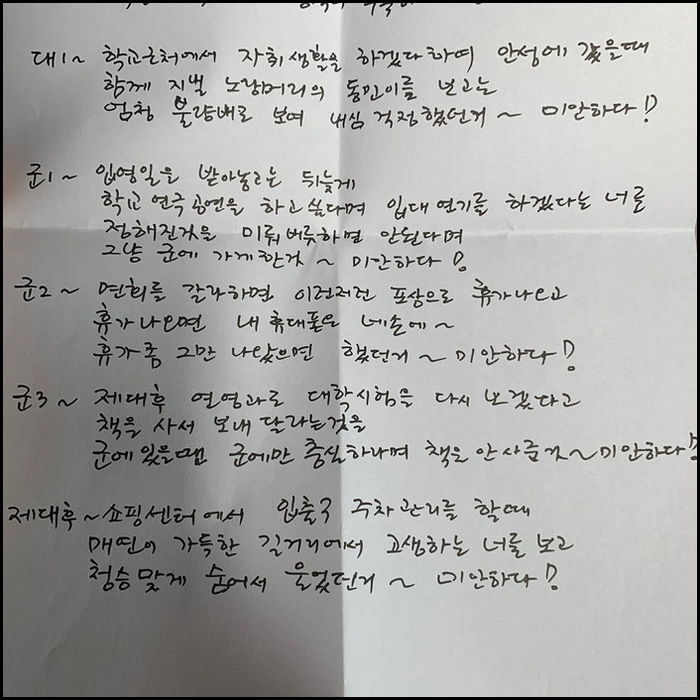 대1~ 학교근처에서 자취생활을 하겠다하여 안성에 갔을때
함께 지낼 노랑머리의 동민이를 보고는
엄청 불량배로 보여 내심 걱정했던거~ 미안하다!
군1~ 입영일을 받아놓고는 뒤늦게
학교 연극공연을 하고싶다며 입대연기를 하겠다는 너를
정해진것을 미뤄버릇하면 안된다며
그냥 군에 가게한것~ 미안하다!
군2~ 면회를 갈라하면 이런저런 포상으로 휴가나오고
휴가나오면 내 휴대폰은 네손에~
휴가좀 그만 나왔으면 했던거~ 미안하다!
군3~ 제대후 연영과로 대학시험을 다시 보겠다고
책을 사서 보내 달라는것을
군에있을땐 군에만 충실하라며 책을 안사준것~미안하다!
제대후~쇼핑센터에서 입출구 주차관리를 할때
매연이 가득한 길거리에서 고생하는 너를 보고
청승맞게 숨어서 울었던거~ 미안하다!